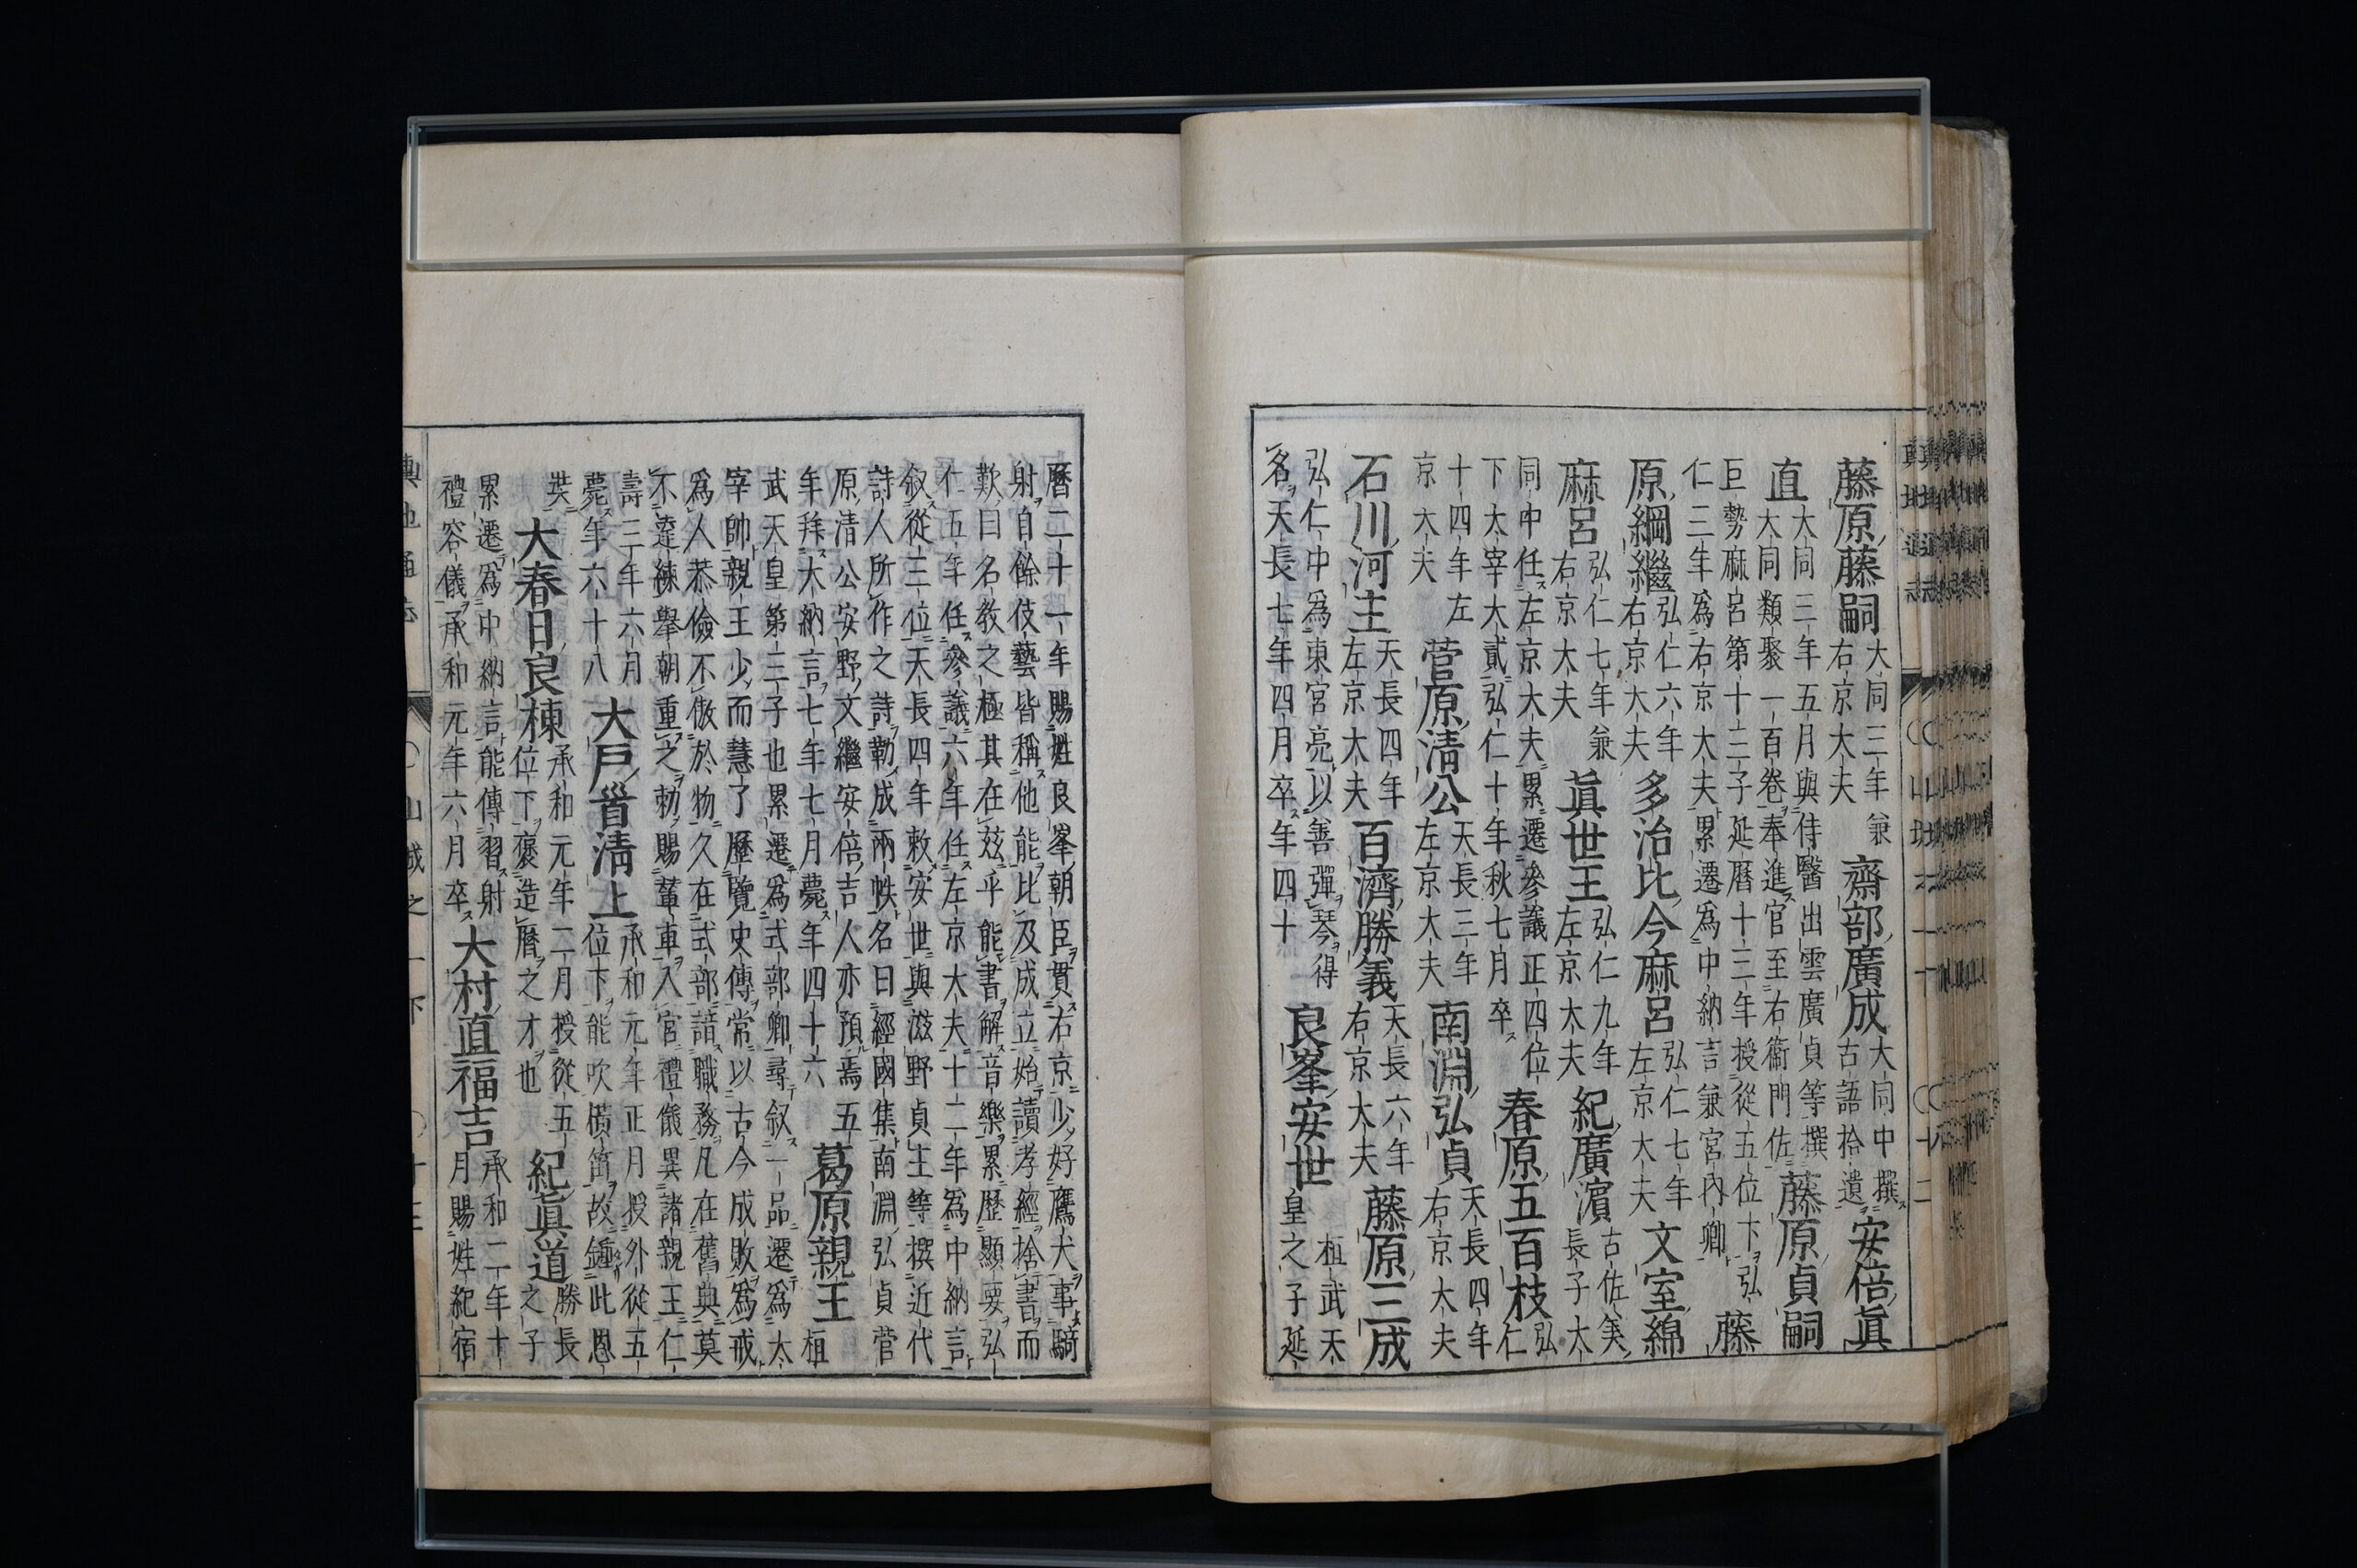 藤原藤嗣 大同三年兼
右京大夫 齋部廣成 大同中撰
古語拾遺 安倍眞
直 大同三年五月與侍醫出雲廣貞等撰
大同類聚一百卷奉進官至右衞門佐 藤原貞嗣
巨勢麻呂第十二子延暦十三年授從五位下弘
仁三年為右京大夫累遷為中納言兼宮內卿 藤
原綱繼 弘仁六年
右京大夫 多治比今麻呂 弘仁七年
左京大夫 文室綿
麻呂 弘仁七年兼
右京大夫 眞世王 弘仁九年
左京大夫 紀廣濵 古佐美
長子太
同中任左京大夫累遷參議正四位
下太宰大貳弘仁十年秋七月卒 春原五百枝 弘
仁
十四年左
京大夫 菅原清公 天長三年
左京大夫 南淵弘貞 天長四年
右京大夫
石川河主 天長四年
左京大夫 百濟勝義 天長六年
右京大夫 藤原三成
弘仁中為東宮亮以善彈琴得
名天長七年四月卒年四十 良峯安世 桓武天
皇之子延
暦二十一年賜姓良峯朝臣貫右京少好鷹犬事騎
射自餘伎藝皆稱他能比及成立始讀孝經捨書而
歎曰名教之極其在兹乎能書解音樂累歷顯要弘
仁五年任參議六年任左京大夫十二年為中納言
叙從三位天長四年敕安世與滋野貞主等撰近代
詩人所作之詩勒成兩帙名曰經國集南淵弘貞菅
原清公安野文繼安倍吉人亦預焉五
年拜大納言七年七月薨年四十六 葛原親王 桓
武天皇第三子也累遷為式部卿尋叙一品遷為太
宰帥親王少而慧了歷覽史傳常以古今成敗為戒
為人恭儉不傲於物久在式部諳職務凡在舊典莫
不達練舉朝重之勅賜輦車入宮禮儀異諸親王仁
壽三年六月
薨年六十八 大戶首清上 承和元年正月授外從五
位下能吹橫笛故鍾此恩
奘 大春日良棟 承和元年二月授從五
位下褒造暦之才也 紀眞道 勝長
之子
累遷為中納言能傳習射
禮容儀承和元年六月卒 大村直福吉 承和二年十
月賜姓紀宿